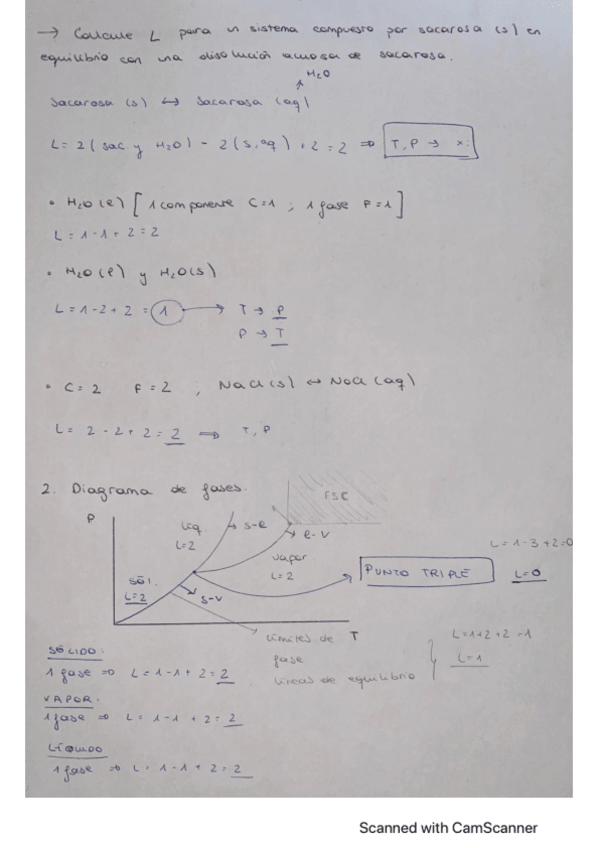 → Calcule L para un sistema compuesto por sacarosa (s) en
equilibrio con una disolución acuosa de sacarosa.
H₂O
Sacarosa (s) ↔ Sacarosa (aq)
L = 2 (sac. y H₂O) - 2 (s, aq) + 2 = 2 ⇒ T, P → xᵢ
• H₂O (l) [1 componente C=1 ; 1 fase F=1]
L = 1 - 1 + 2 = 2
• H₂O (l) y H₂O (s)
L = 1 - 2 + 2 = 1 → T → P
P → T
• C = 2 F = 2 ; NaCl (s) ↔ NaCl (aq)
L = 2 - 2 + 2 = 2 ⇒ T, P
2. Diagrama de fases.
P
FSC
líq
L=2
s-l
l-v
vapor
L=2
L = 1 - 3 + 2 = 0
PUNTO TRIPLE
L=0
SÓl.
L=2
s-v
T
límites de
fase
líneas de equilibrio
L = 1 + 2 + 2 = 1
L = 1
SÓLIDO:
1 fase ⇒ L = 1 - 1 + 2 = 2
VAPOR:
1 fase ⇒ L = 1 - 1 + 2 = 2
LÍQUIDO
1 fase ⇒ L = 1 - 1 + 2 = 2
Scanned with CamScanner